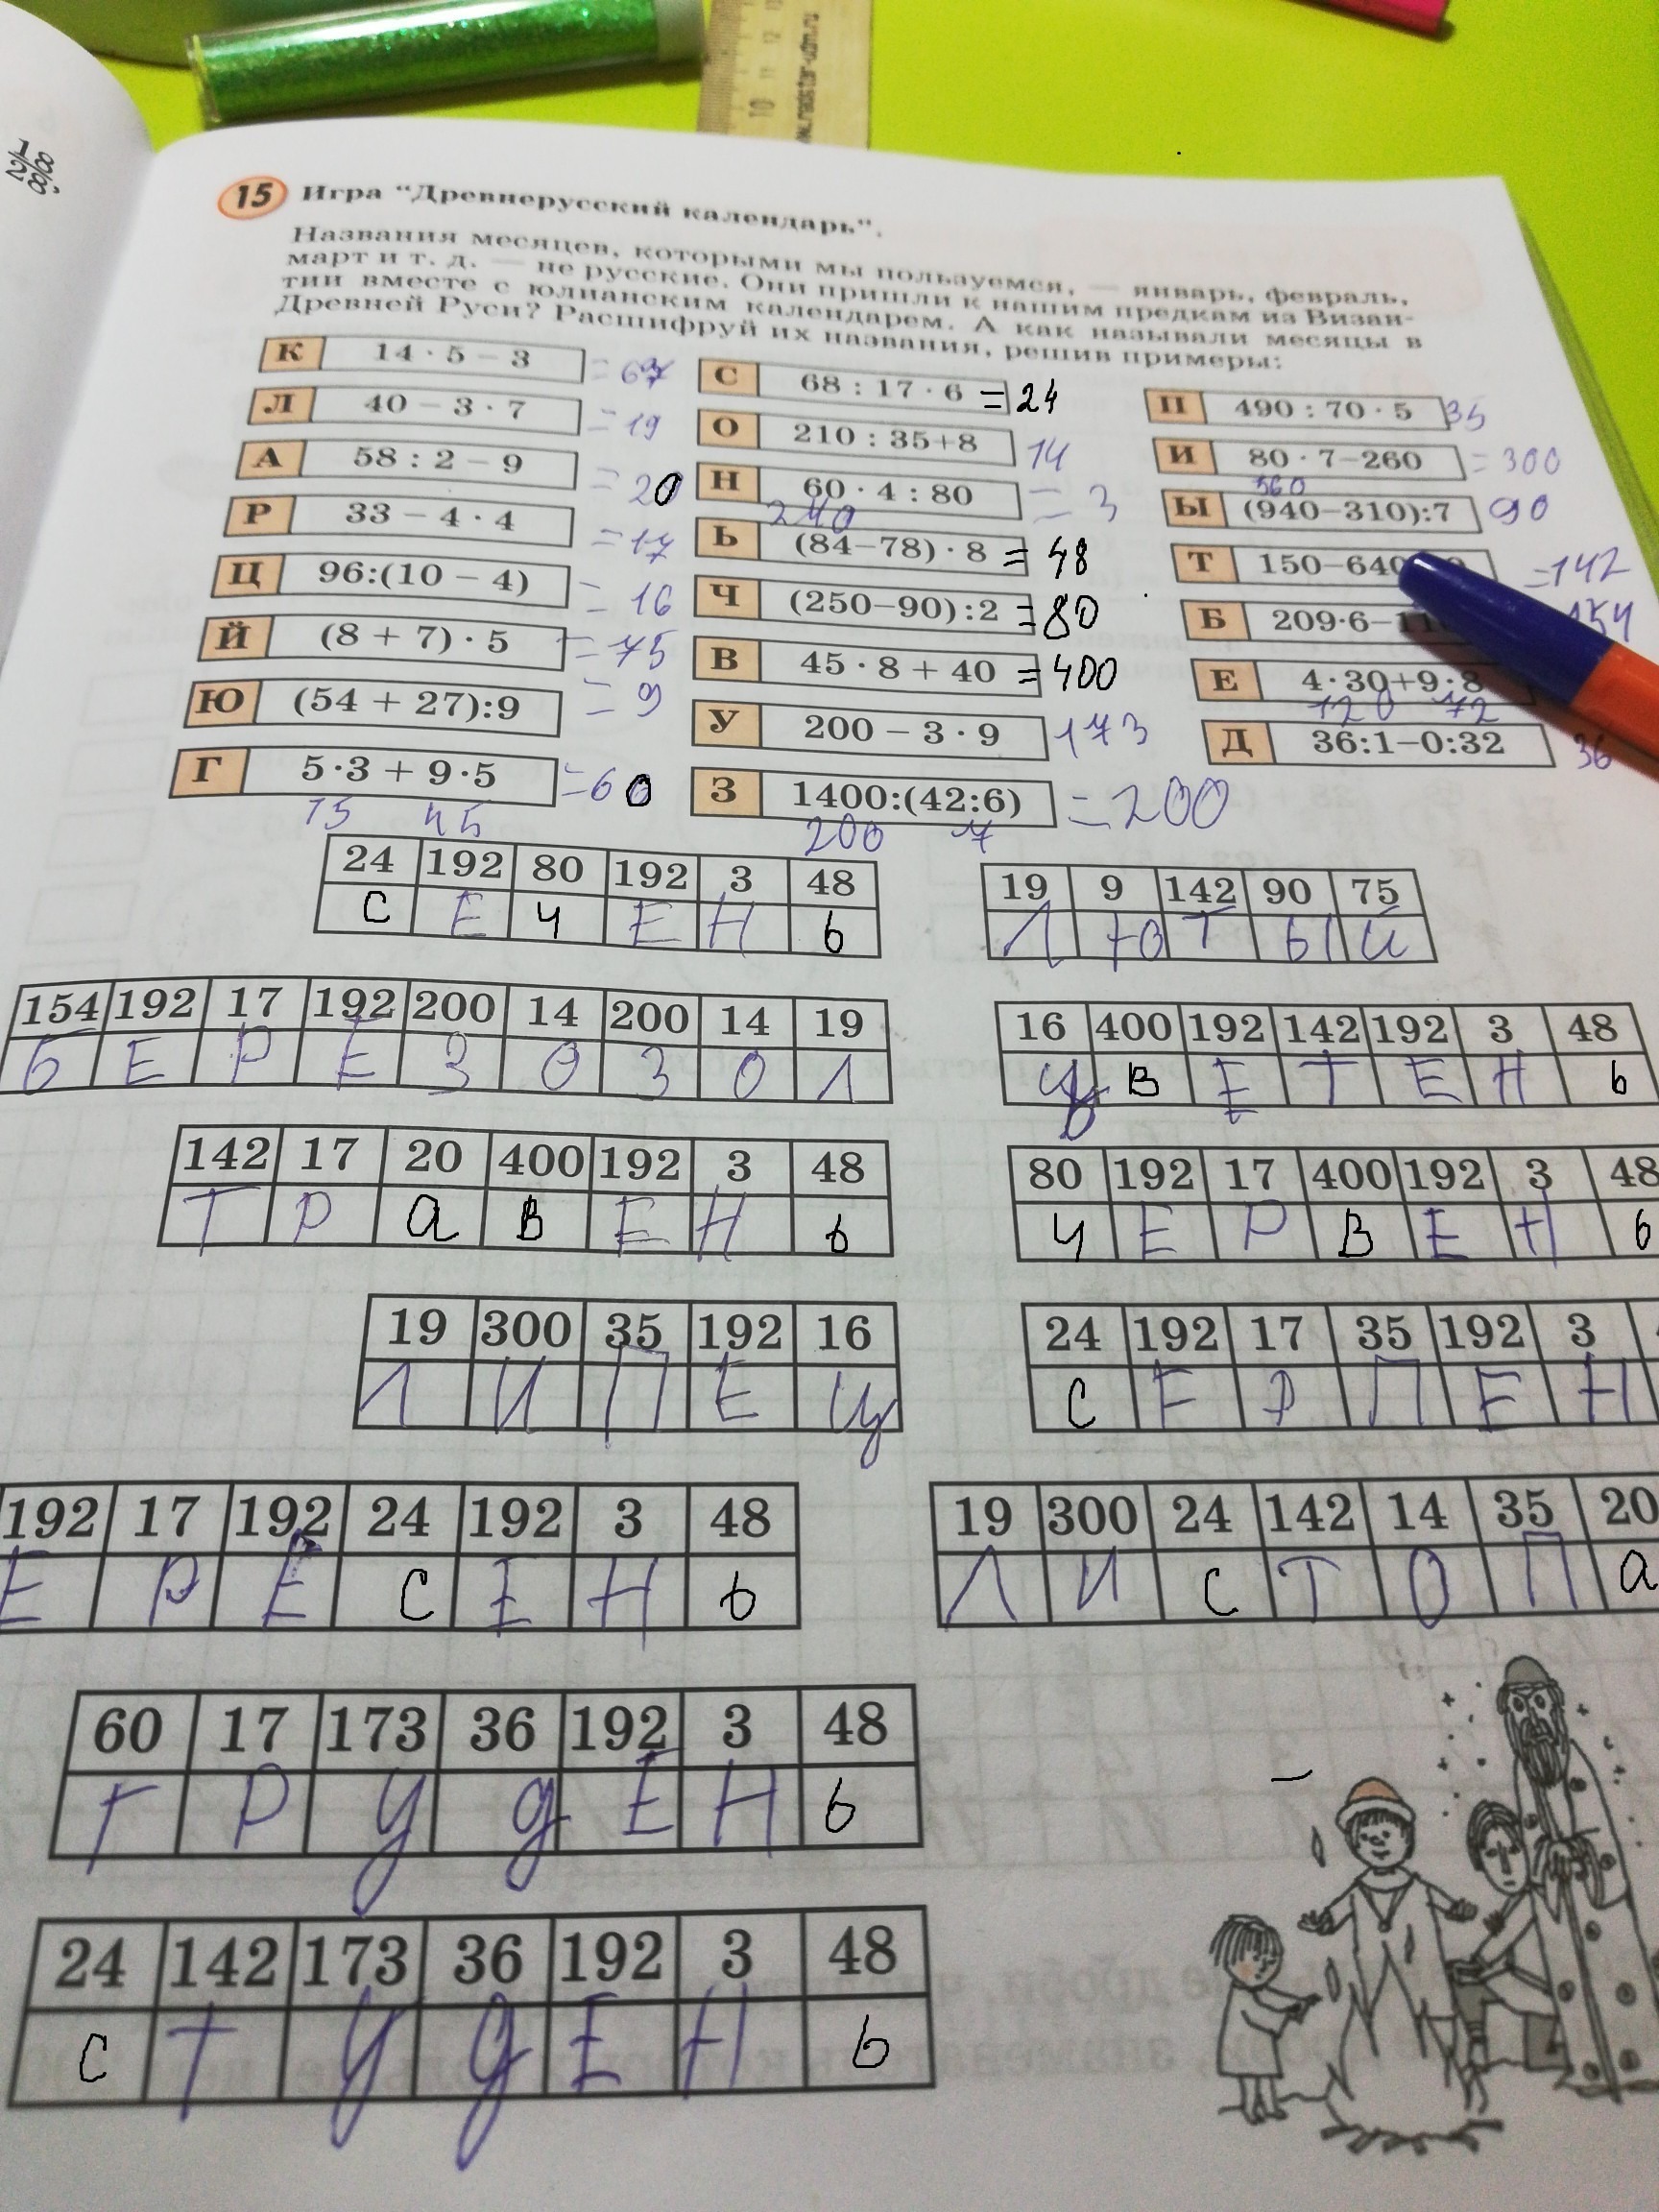 15 Игра "Древнерусский календарь".
Названия месяцев, которыми мы пользуемся, — январь, февраль,
март и т. д. — не русские. Они пришли к нашим предкам из Визан-
тии вместе с юлианским календарем. А как называли месяцы в
Древней Руси? Расшифруй их названия, решив примеры:
К 14 · 5 – 3 = 67
С 68 : 17 · 6 = 24
П 490 : 70 · 5 35
Л 40 – 3 · 7 = 19
О 210 : 35+8 14
И 80 · 7–260 = 300
560
А 58 : 2 – 9 = 20
Н 60 · 4 : 80 = 3
240
Ы (940–310):7 90
Р 33 – 4 · 4 = 17
Ь (84–78) · 8 = 48
Т 150–640 =142
Ц 96:(10 – 4) = 16
Ч (250–90):2 = 80
Б 209·6– 154
Й (8 + 7) · 5 = 75
В 45 · 8 + 40 = 400
Е 4·30+9·8
120 72
Ю (54 + 27):9 = 9
У 200 – 3 · 9 173
Д 36:1–0:32 36
Г 5·3 + 9·5 =60
15 45
З 1400:(42:6) = 200
200 7
24 192 80 192 3 48
С Е Ч Е Н Ь
19 9 142 90 75
Л Ю Т Ы Й
154 192 17 192 200 14 200 14 19
Б Е Р Е З О З О Л
16 400 192 142 192 3 48
Ц В Е Т Е Н Ь
142 17 20 400 192 3 48
Т Р а В Е Н Ь
80 192 17 400 192 3 48
Ч Е Р В Е Н Ь
19 300 35 192 16
Л И П Е Ц
24 192 17 35 192 3
С Е Р П Е Н
192 17 192 24 192 3 48
Е Р Е С Е Н Ь
19 300 24 142 14 35 20
Л И С Т О П а
60 17 173 36 192 3 48
Г Р У д Е Н Ь
24 142 173 36 192 3 48
С Т У д Е Н Ь